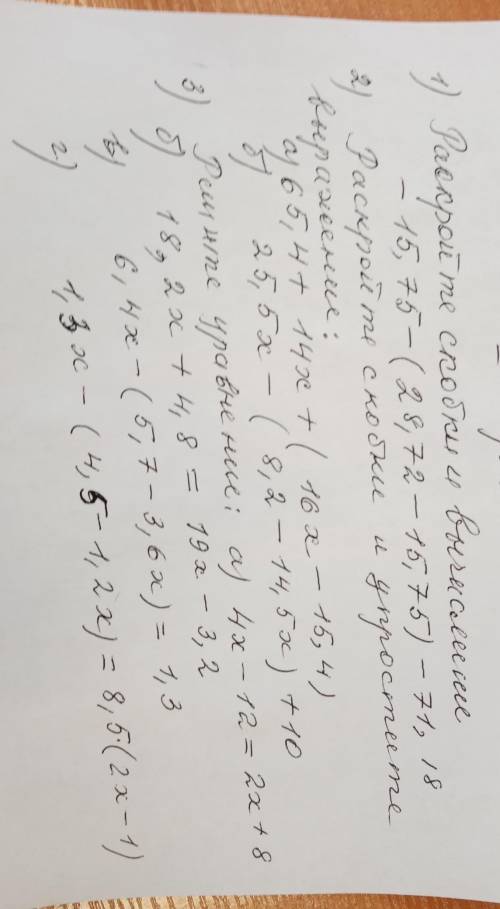 1) Раскройте спобки и вычисление
- 15,75 - (28,72 - 15,75) - 71,18
2) Раскройте скобки и упростите
выражение:
а) 65,4 + 14x + (16x - 15,4)
б) 25,5x - (8,2 - 14,5x) + 10
3) Решите уравнение: а) 4x - 12 = 2x + 8
б) 18,2x + 4,8 = 19x - 3,2
в) 6,4x - (5,7 - 3,6x) = 1,3
г) 1,3x - (4,5 - 1,2x) = 8,5·(2x - 1)